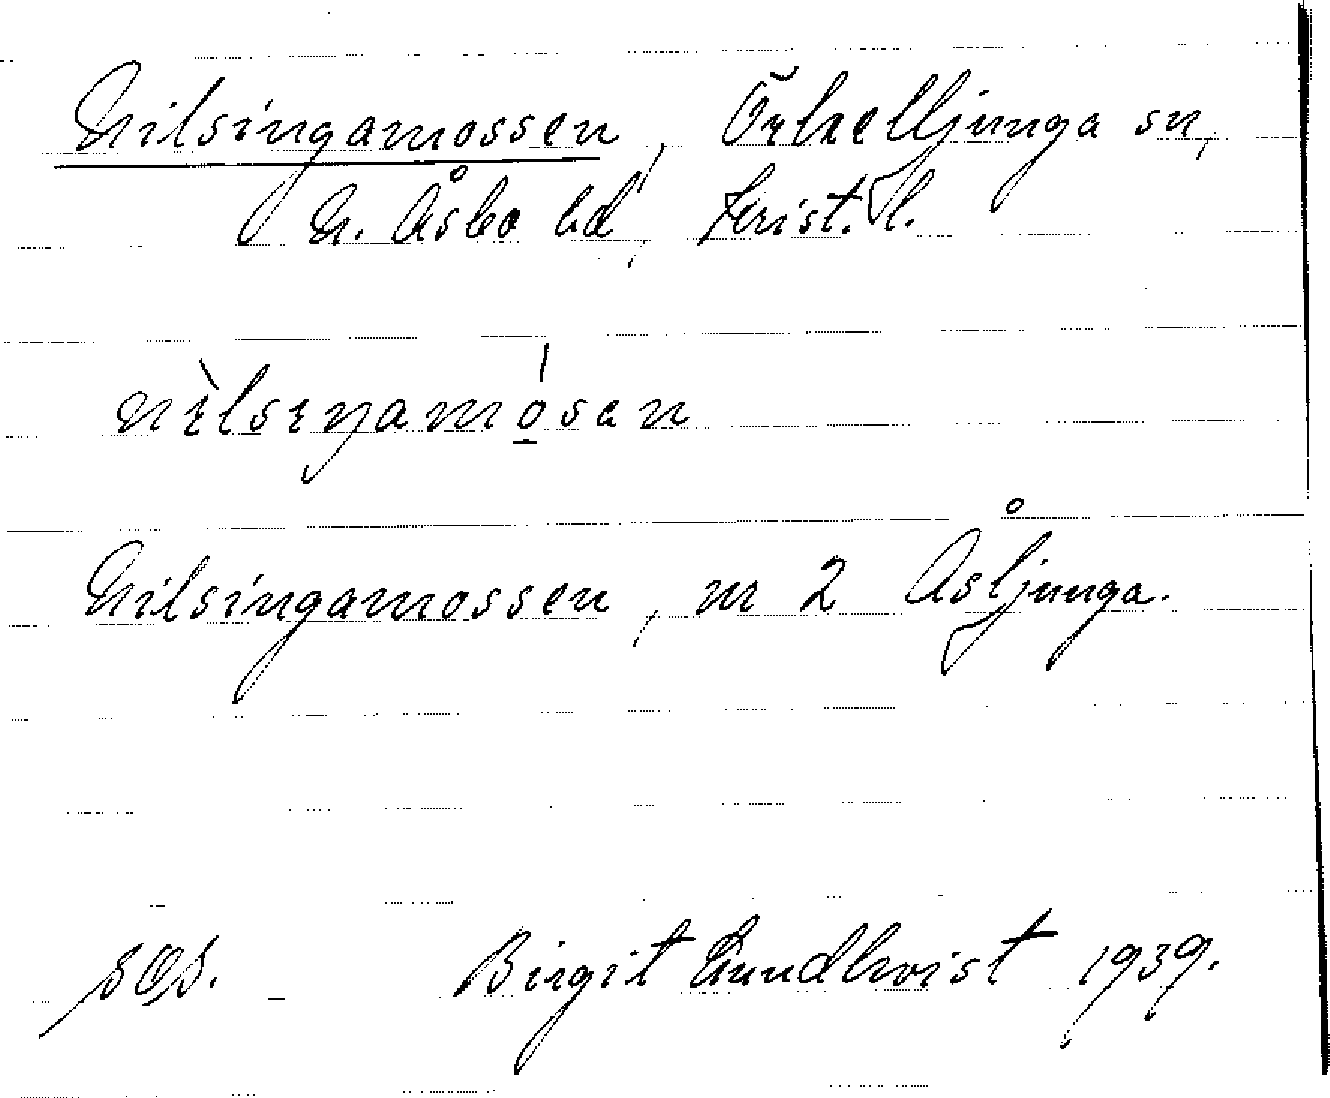 Nilsingamossen, Örkelljunga sn,
N. Åsbo hd, Krist. l.
nìlsɩŋamó̱sən
Nilsingamossen, nr 2 Åsljunga.
Birgit Lundkvist 1939.